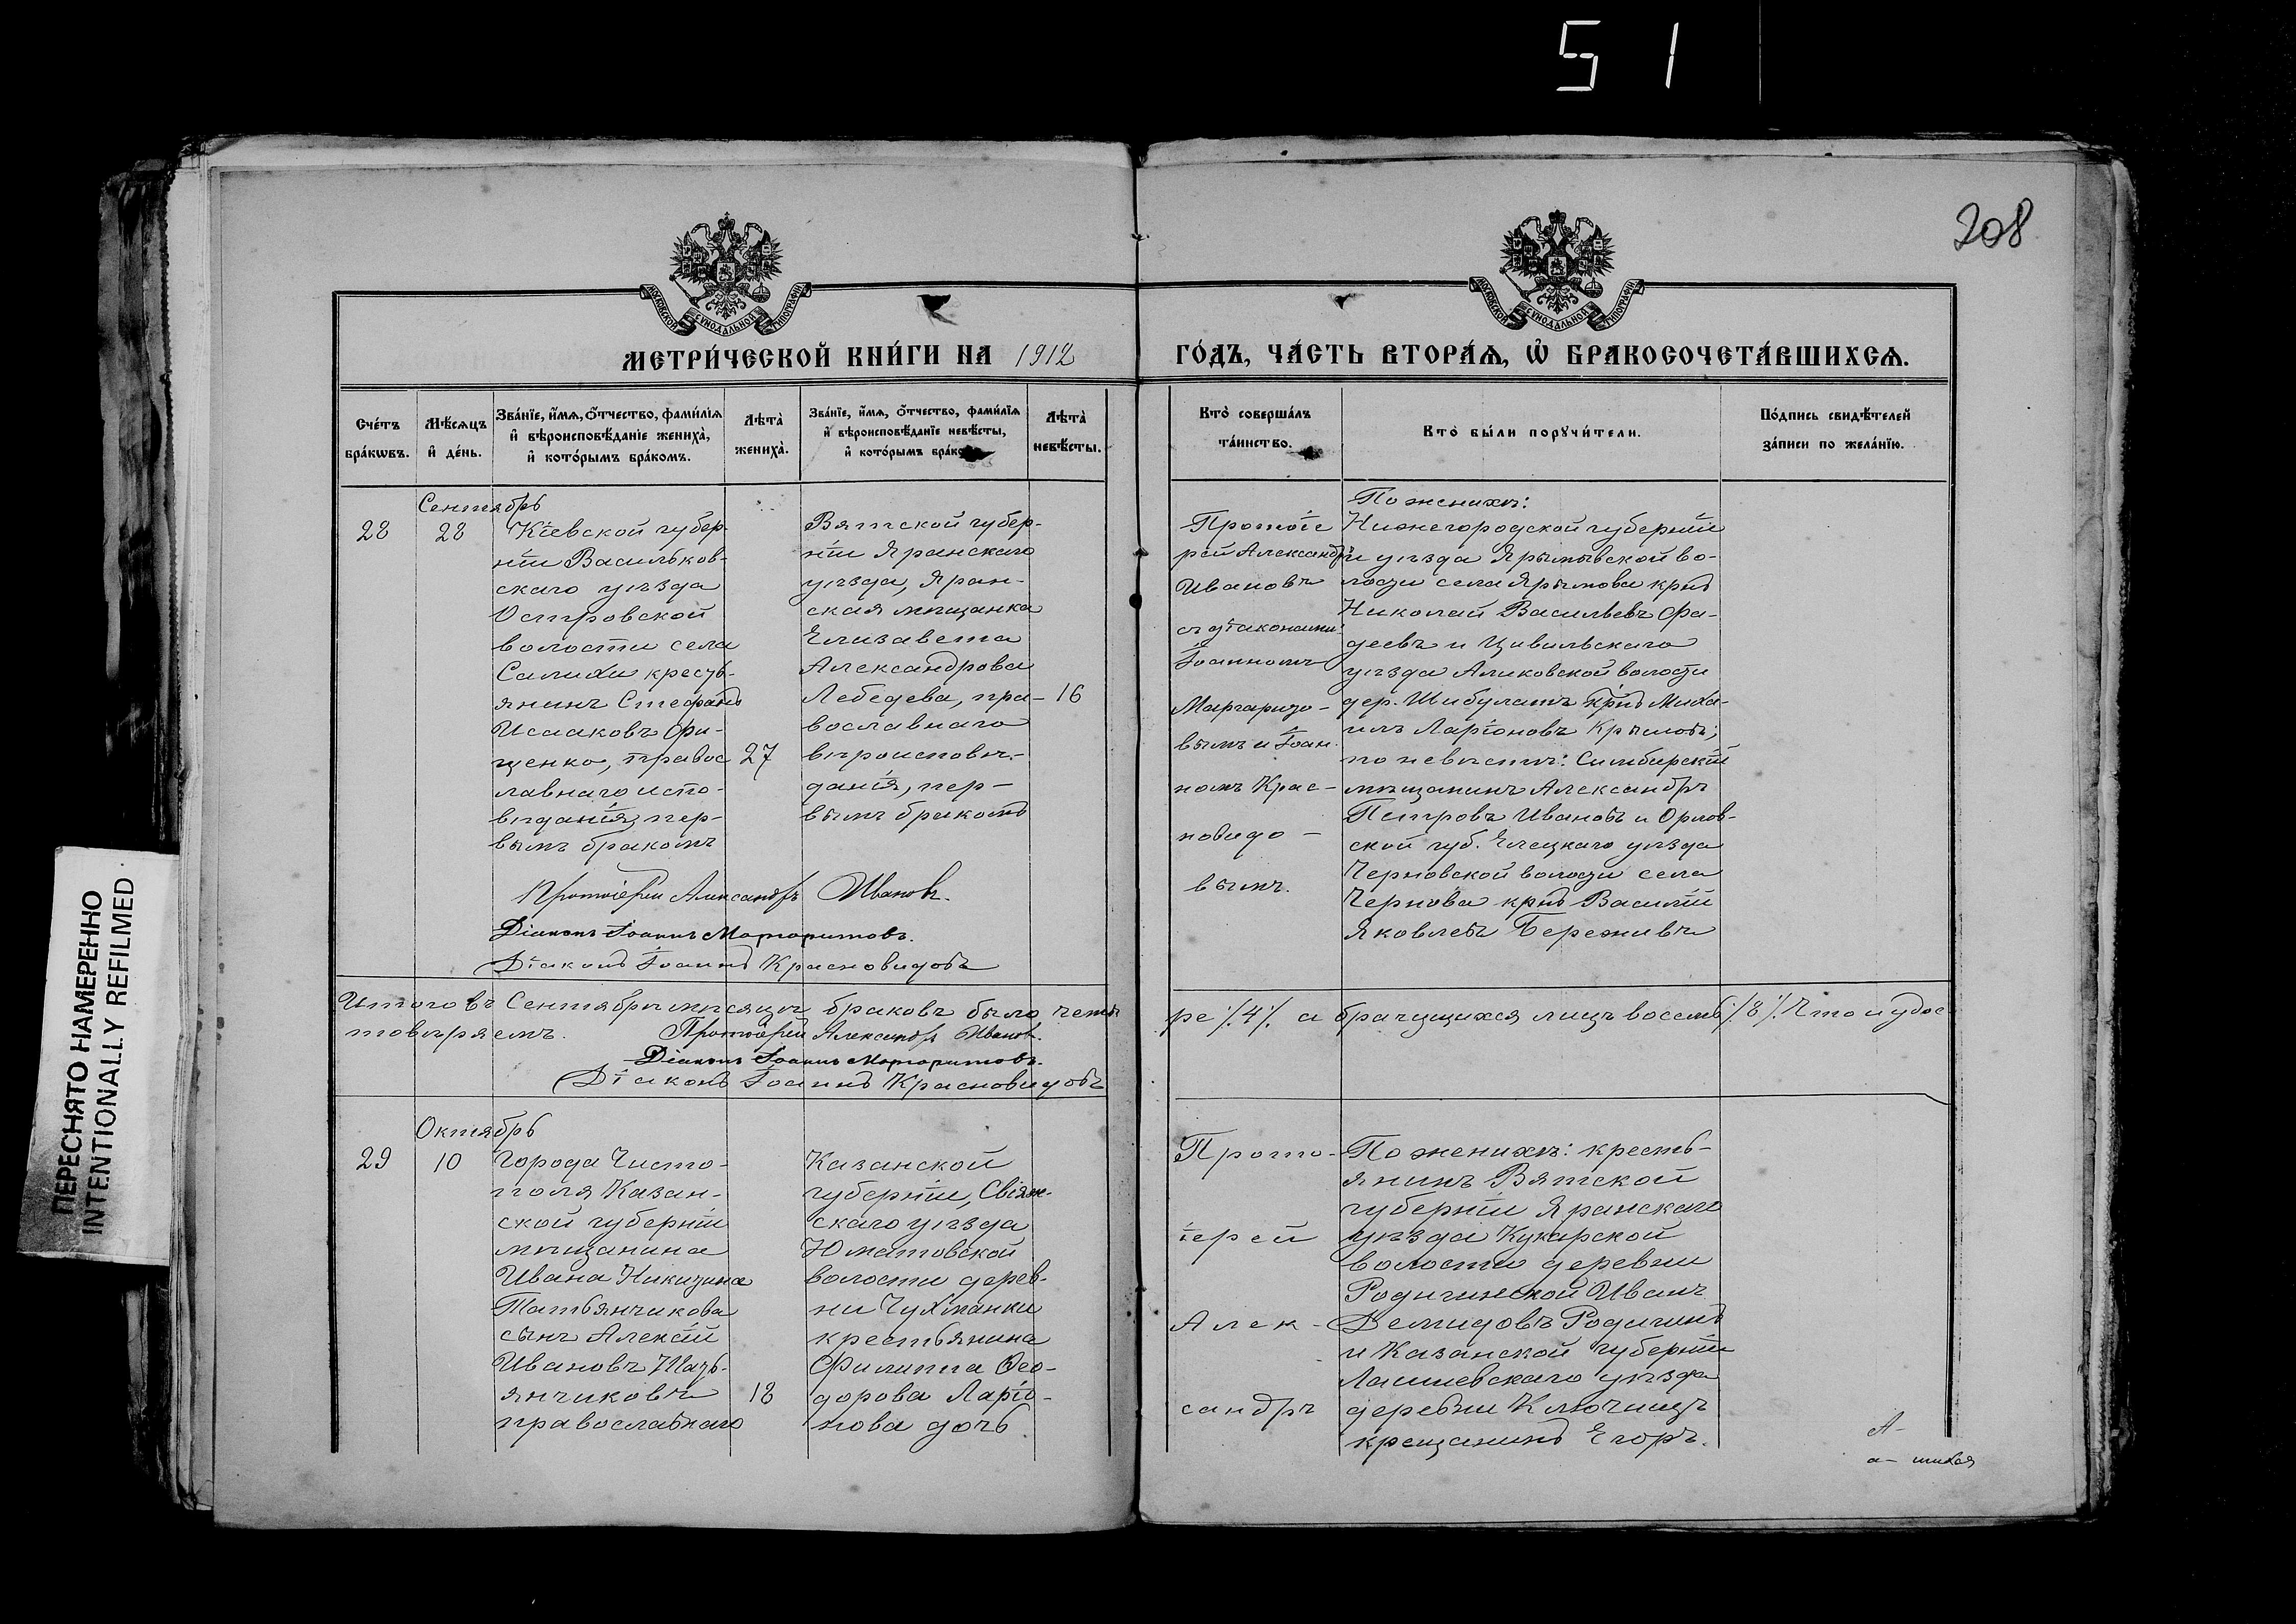 51
208
МЕТРИ́ЧЕСКОЙ КНИ́ГИ НА 1912
ГО́ДЪ, ЧА́СТЬ ВТОРА́Ѧ, Ѡ҆ БРАКОСОЧЕТА́ВШИХСѦ.
МОСКОВСКОЙ СѴНОДАЛЬНОЙ ТИПОГРАФІИ
МОСКОВСКОЙ СѴНОДАЛЬНОЙ ТИПОГРАФІИ
Сче́тъ бра́кѡвъ.
Мѣ́сяцъ й де́нь.
Зва́нїе, и҆́мѧ, ѻ҆́тчество, фами́лїѧ
и҆ вѣроисповѣ́данїе жениха̀,
и҆ кото́рымъ бра́комъ.
Лѣта̀ жениха̀.
Зва́нїе, и҆́мѧ, ѻ҆́тчество, фами́лїѧ
и҆ вѣроисповѣ́данїе невѣ́сты,
и҆ кото́рымъ бра́ко
Лѣта̀ невѣ́сты.
Кто̀ соверша́лъ
та́инство.
Кто̀ бы́ли порꙋчи́тели.
По́дпись свидѣ́телей
за́писи по жела́нїю.
Сентябрь
28
28
Кіевской губер-
ніи Васильков-
скаго уѣзда
Островской
волости села
Салихи кресть-
янинъ Стефанъ
Исааковъ Фи-
щенко, правос
лавнаго испо-
вѣданія, пер-
вымъ бракомъ
27
Вятской губер-
ніи Яранскаго
уѣзда, Яран-
ская мѣщанка
Елизавета
Александрова
Лебедева, пра-
вославнаго
вѣроисповѣ-
данія, пер-
вымъ бракомъ
16
Протоіе
рей Александръ
Ивановъ
съ діаконами:
Іоанномъ
Маргарито-
вымъ и Іоан-
номъ Крас-
новидо-
вымъ.
По женихѣ:
Нижегородской губерніи
и уѣзда Ярымовской во-
лости села Ярымова крнъ
Николай Васильевъ Фа-
деевъ и Цивильскаго
уѣзда Аликовской волости
дер. Шибулатъ крнъ Миха-
илъ Ларіоновъ Крыловъ;
по невѣстѣ: Симбирскій
мѣщанинъ Александръ
Петровъ Ивановъ и Орлов-
ской губ. Елецкаго уѣзда
Черновской волости села
Чернова крнъ Василій
Яковлевъ Береживъ
Протоіерей Александръ Ивановъ.
Діаконъ Іоаннъ Маргаритовъ.
Діаконъ Іоаннъ Красновидовъ
Итого въ Сентябрѣ мѣсяцѣ браковъ было четы
ре /.4/. а брачущихся лицъ восемь /.8/. Что и удос-
товѣряемъ.
Протоіерей Александръ Ивановъ.
Діаконъ Іоаннъ Маргаритовъ.
Діаконъ Іоаннъ Красновидовъ
Октябрь
29
10
Города Чисто-
поля Казан-
ской губерніи
мѣщанина
Ивана Никитина
Татьянчикова
сынъ Алексѣй
Ивановъ Тать-
янчиковъ
православнаго
18
Казанской
губерніи, Свіяж-
скаго уѣзда
Юматовской
волости дерев-
ни Чухланки
крестьянина
Филиппа Ѳео-
дорова Ларіо-
нова дочь
Прото-
іерей
Алек-
сандръ
По женихѣ: кресть-
янинъ Вятской
губерніи Яранскаго
уѣзда Кукарской
волости деревни
Родигинской Иванъ
Демидовъ Родигинъ
и Казанской губерніи
Лаишевскаго уѣзда
деревни Ключищъ
крещанинъ Егоръ.
А-
а-
ПЕРЕСНЯТО НАМЕРЕННО
INTENTIONALLY REFILMED